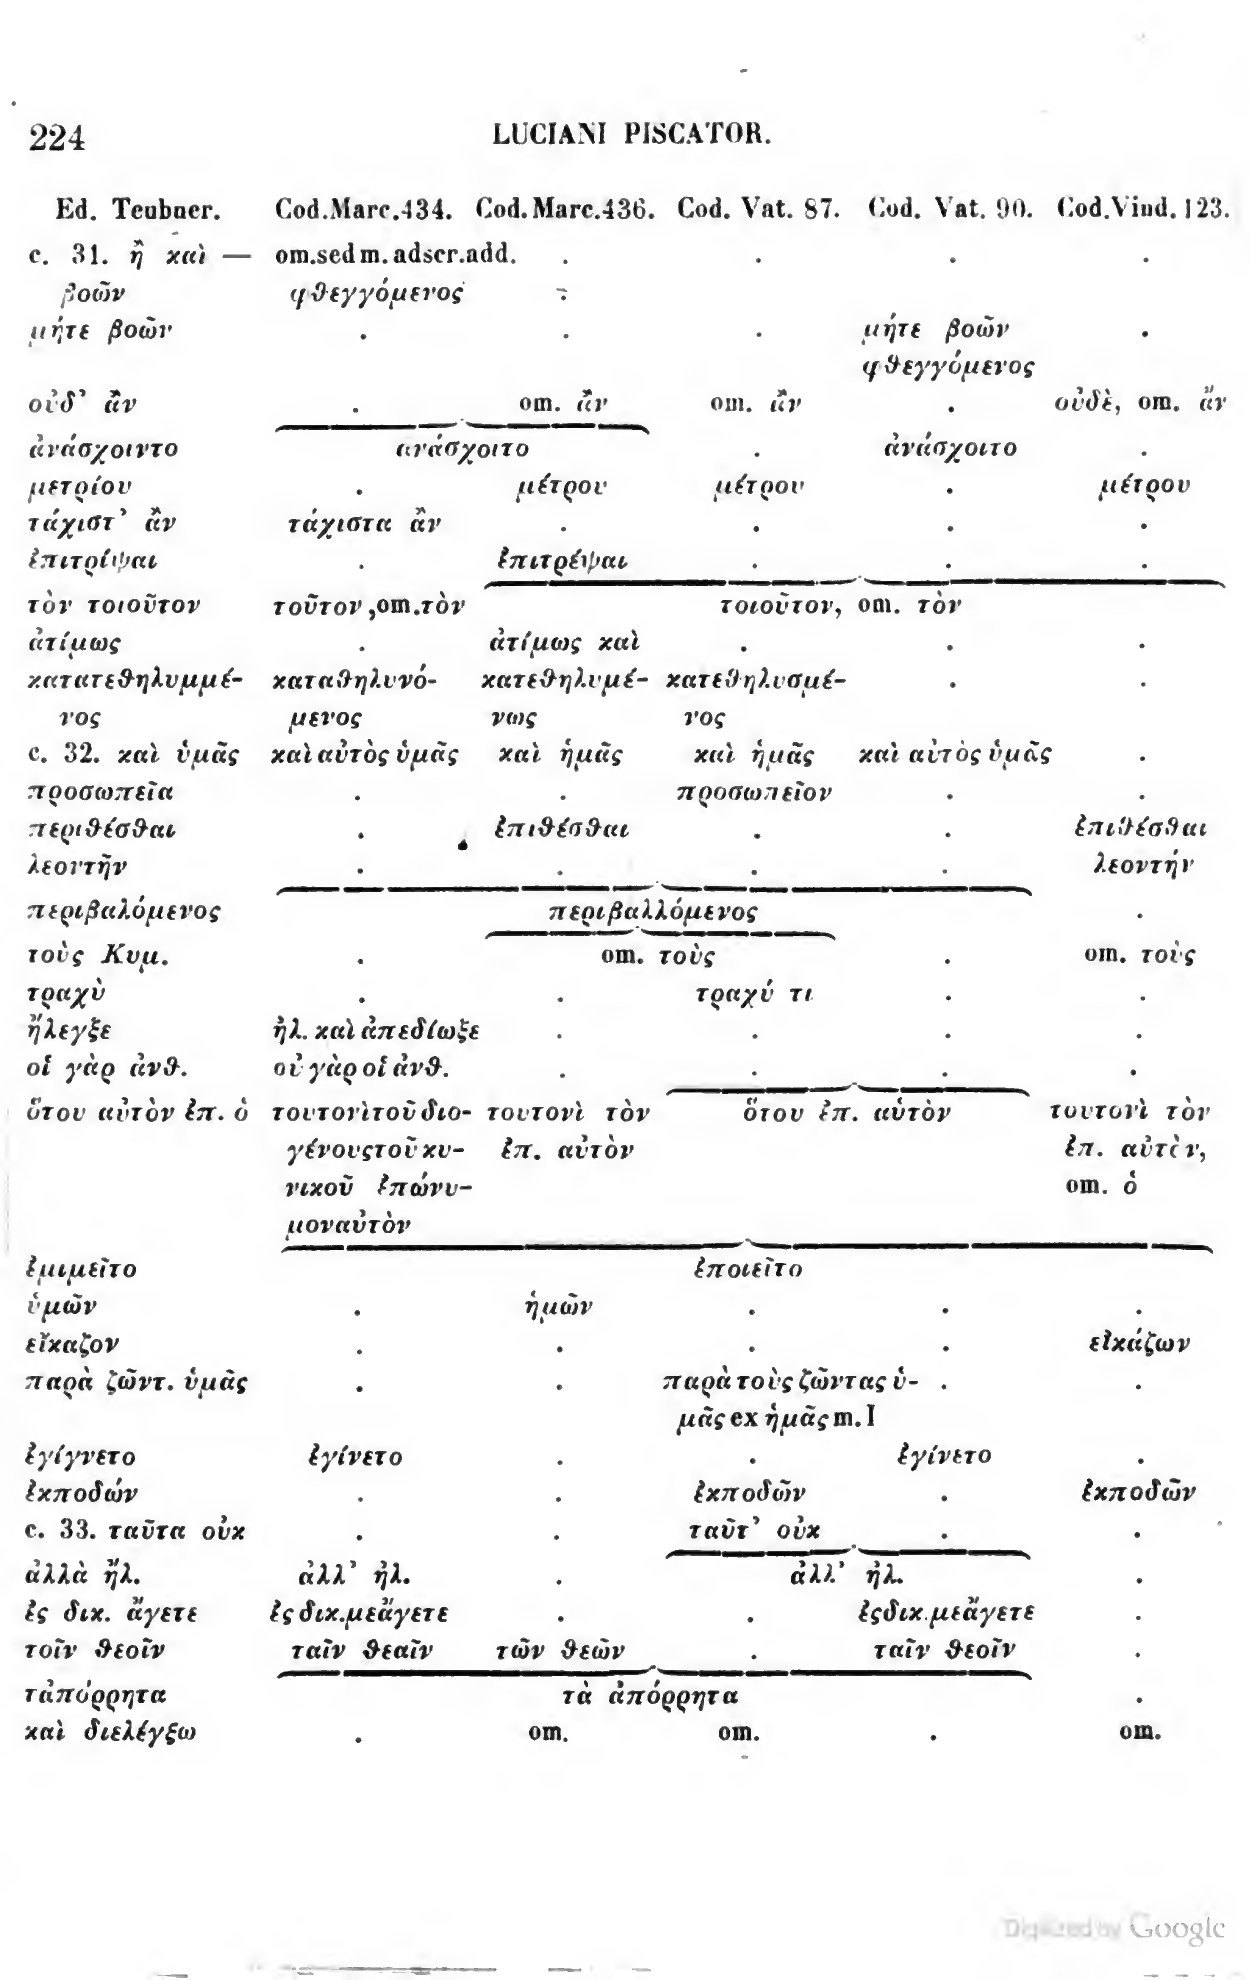 224 LUCIANI PISCATOR.
Ed. Teubner. Cod.Marc.434. Cod.Marc.436. Cod. Vat. 87. Cod. Vat. 90. Cod.Vind.123.
c. 31. ἢ καὶ — om.sed m. adscr.add. . . . .
βοῶν φθεγγόμενος .
μήτε βοῶν . . . μήτε βοῶν .
φθεγγόμενος
οὐδ’ ἂν . om. ἂν om. ἂν . οὐδὲ, om. ἄν
ἀνάσχοιντο ἀνάσχοιτο . ἀνάσχοιτο .
μετρίου . μέτρου μέτρου . μέτρου
τάχιστ’ ἂν τάχιστα ἂν . . . .
ἐπιτρίψαι . ἐπιτρέψαι . . .
τὸν τοιοῦτον τοῦτον,om.τὸν τοιοῦτον, om. τὸν
ἀτίμως . ἀτίμως καὶ . . .
κατατεθηλυμμέ- καταθηλυνό- κατεθηλυμέ- κατεθηλυσμέ- . .
νος μενος νως νος
c. 32. καὶ ὑμᾶς καὶ αὐτὸς ὑμᾶς καὶ ἡμᾶς καὶ ἡμᾶς καὶ αὐτὸς ὑμᾶς .
προσωπεῖα . . προσωπεῖον . .
περιθέσθαι . ἐπιθέσθαι . . ἐπιθέσθαι
λεοντῆν . . . . λεοντήν
περιβαλόμενος περιβαλλόμενος .
τοὺς Κυμ. . om. τοὺς . om. τοὺς
τραχὺ . . τραχύ τι . .
ἤλεγξε ἠλ. καὶ ἀπεδίωξε . . . .
οἱ γὰρ ἀνθ. οὐ γὰρ οἱ ἀνθ. . . . .
ὅτου αὐτὸν ἐπ. ὁ τουτονὶ τοῦ διο- τουτονὶ τὸν ὅτου ἐπ. αὐτὸν τουτονὶ τὸν
γένους τοῦ κυ- ἐπ. αὐτὸν ἐπ. αὐτὸν,
νικοῦ ἐπώνυ- om. ὁ
μον αὐτὸν
ἐμιμεῖτο ἐποιεῖτο
ὑμῶν . ἡμῶν . . .
εἴκαζον . . . . εἰκάζων
παρὰ ζῶντ. ὑμᾶς . . παρὰ τοὺς ζῶντας ὑ- . .
μᾶς ex ἡμᾶς m. I
ἐγίγνετο ἐγίνετο . . ἐγίνετο .
ἐκποδών . . ἐκποδῶν . ἐκποδῶν
c. 33. ταῦτα οὐκ . . ταῦτ’ οὐκ . .
ἀλλὰ ἤλ. ἀλλ’ ἠλ. . ἀλλ’ ἠλ. .
ἐς δικ. ἄγετε ἐς δικ. με ἄγετε . . ἐς δικ. με ἄγετε .
τοῖν θεοῖν ταῖν θεαῖν τῶν θεῶν . ταῖν θεοῖν .
τἀπόρρητα τὰ ἀπόρρητα .
καὶ διελέγξω . om. om. . om.
Digitized by Google